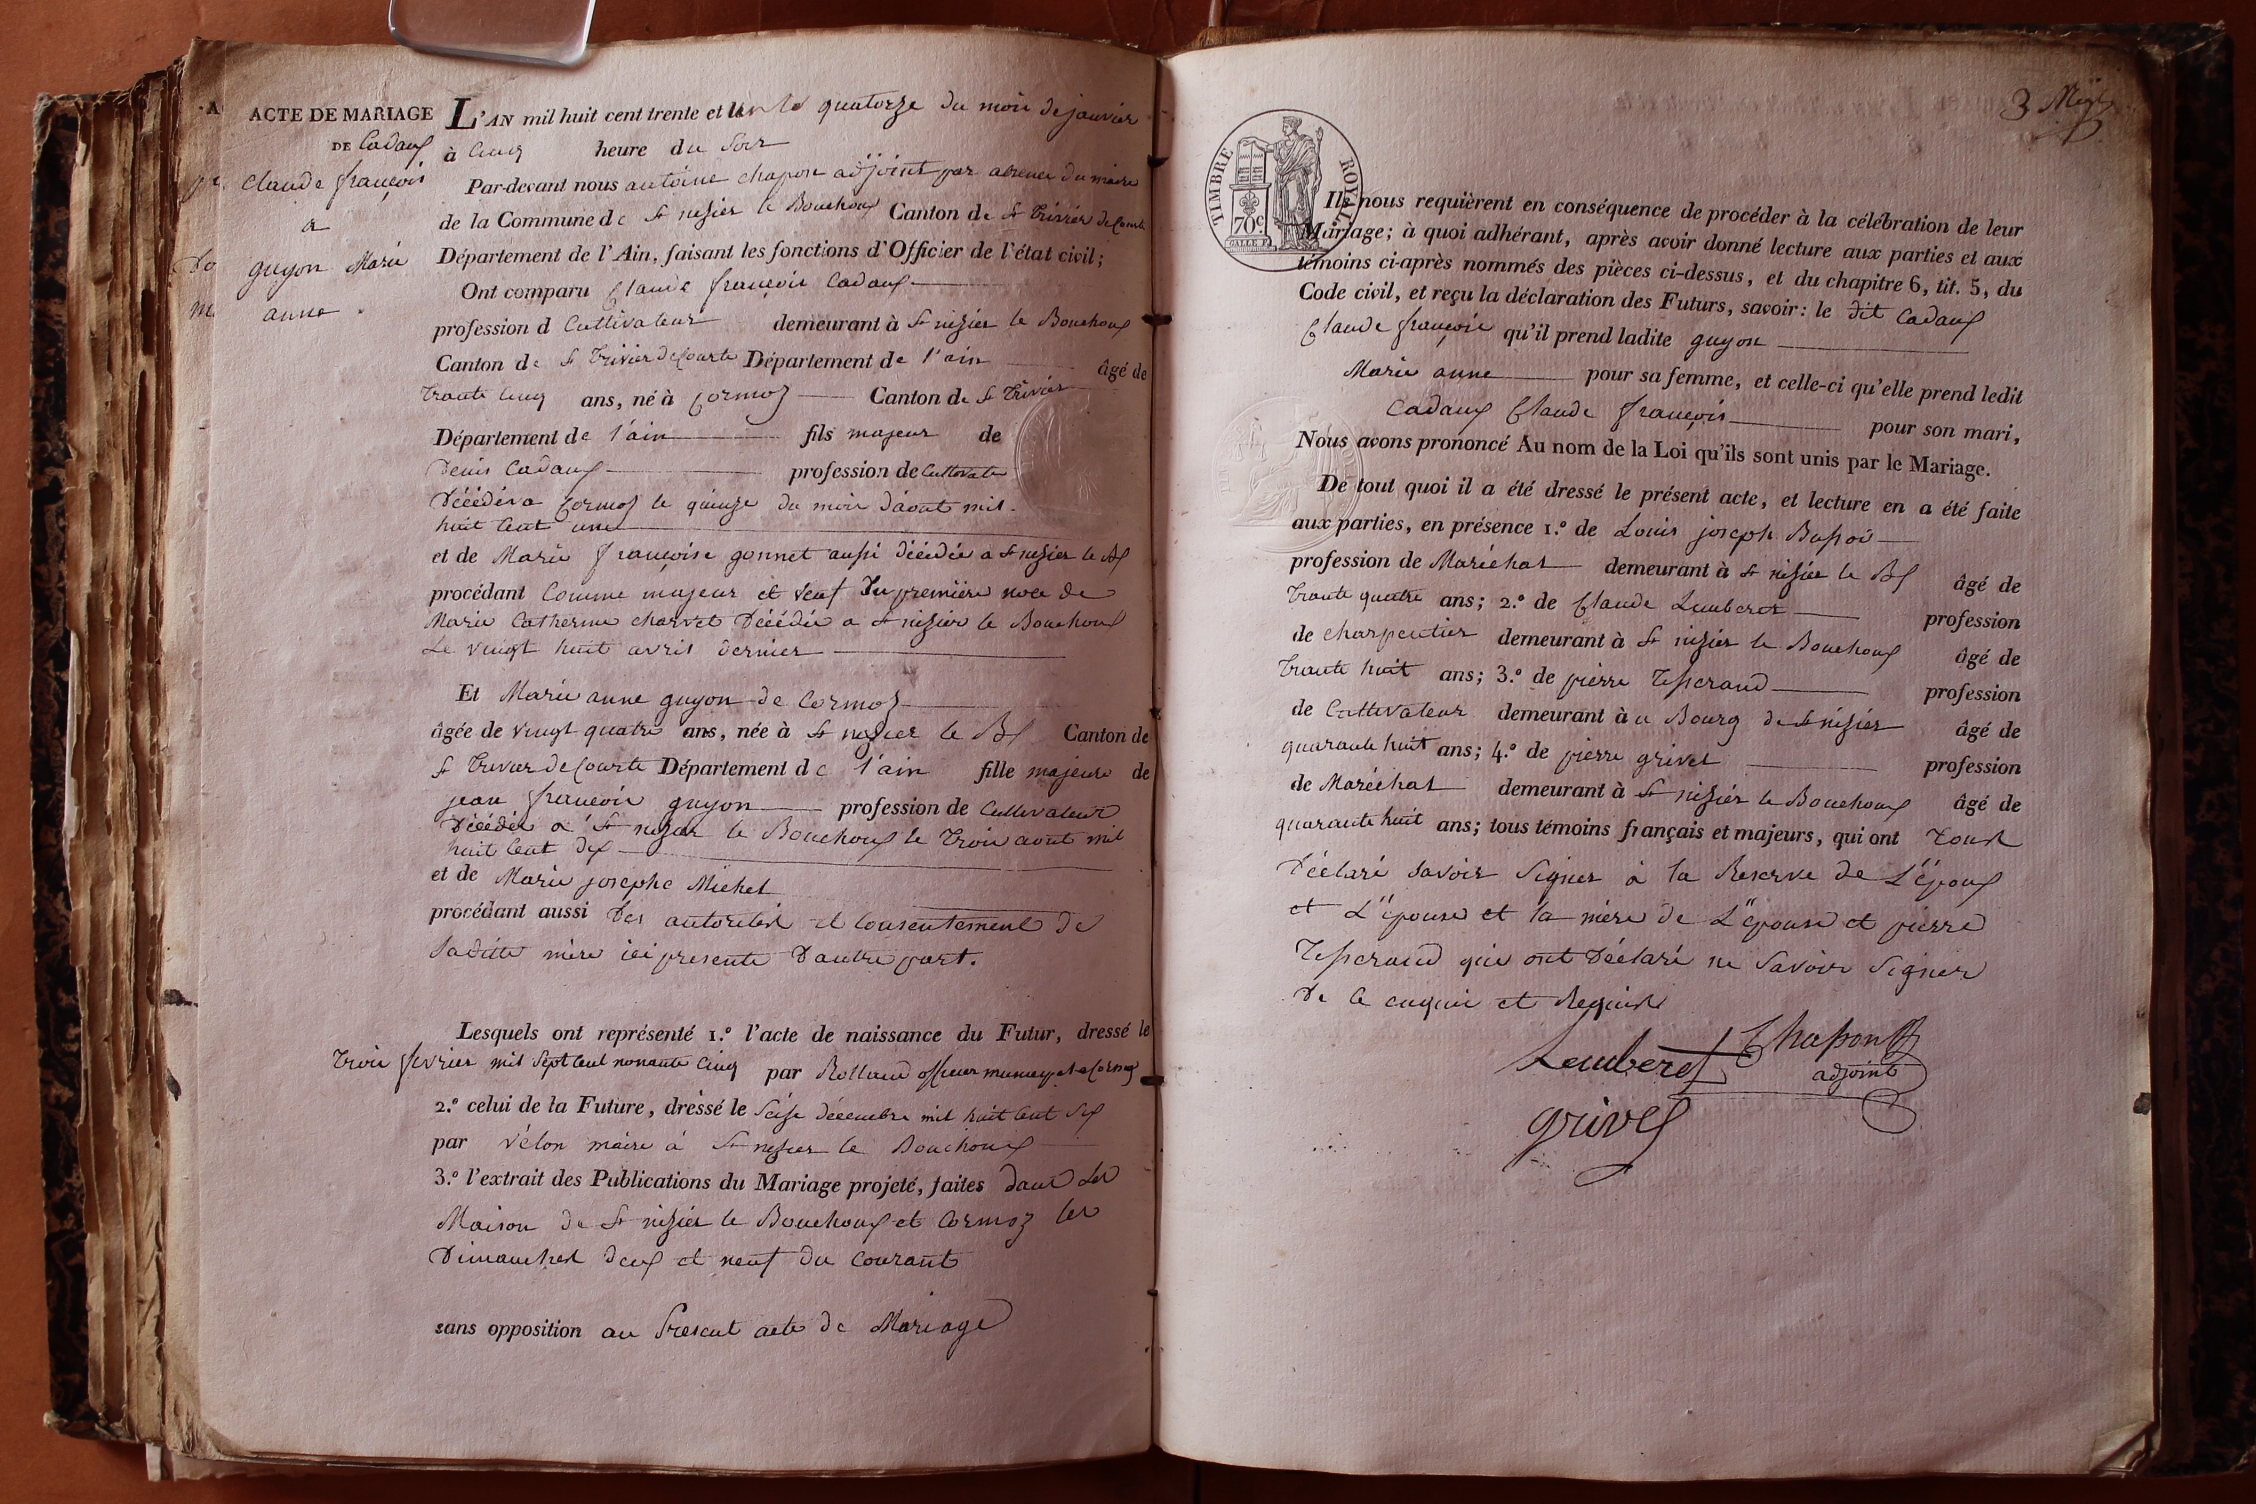 ACTE DE MARIAGE
DE Cadaux
Claude françois
a
guyon Marie
anne
L'AN mil huit cent trente et un le quatorze du mois de janvier
à Cinq heure du Soir
Par-devant nous antoine chapon adjoint par absence du maire
de la Commune de St nizier le Bouchoux Canton de St Trivier de Courte
Département de l'Ain, faisant les fonctions d'Officier de l'état civil;
Ont comparu Claude françois Cadaux
profession d Cultivateur demeurant à St nizier le Bouchoux
Canton de St Trivier de Courte Département de l'ain âgé de
trante cinq ans, né à Cormoz Canton de St Trivier
Département de l'ain fils majeur de
Denis Cadaux profession de Cultivate
Décédé a Cormoz le quinze du mois d'aout mil
huit Cent une
et de Marie françoise gonnet aussi décédée a St nizier le Bx
procédant Comme majeur et veuf du première noce de
Marie Catherine charvet Décédée a St nizier le Bouchoux
Le vingt huit avril dernier
Et Marie anne guyon de Cormoz
âgée de vingt quatre ans, née à St nizier le Bx Canton de
St Trivier de Courte Département de l'ain fille majeure de
jean françois guyon profession de Cultivateur
Décédé a St nizier le Bouchoux le Trois aout mil
huit Cent dix
et de Marie josephe Michel
procédant aussi des autorités et Consentement de
Saditte mère ici presente D'autre part.
Lesquels ont représenté 1.º l'acte de naissance du Futur, dressé le
trois fevrier mil sept Cent nonante Cinq par Rolland officier municipal a Cormoz
2.º celui de la Future, dressé le Seise décembre mil huit Cent Six
par vélon maire à St nizier le Bouchoux
3.º l'extrait des Publications du Mariage projeté, faites dans les
Maison de St nizier le Bouchoux et Cormoz les
Dimanches deux et neuf du Courant
sans opposition au Present acte de Mariage
3
TIMBRE ROYAL
70c
Ils nous requièrent en conséquence de procéder à la célébration de leur
Mariage; à quoi adhérant, après avoir donné lecture aux parties et aux
témoins ci-après nommés des pièces ci-dessus, et du chapitre 6, tit. 5, du
Code civil, et reçu la déclaration des Futurs, savoir: le dit Cadaux
Claude françois qu'il prend ladite guyon
Marie anne pour sa femme, et celle-ci qu'elle prend ledit
Cadaux Claude françois pour son mari,
Nous avons prononcé Au nom de la Loi qu'ils sont unis par le Mariage.
De tout quoi il a été dressé le présent acte, et lecture en a été faite
aux parties, en présence 1.º de Louis joseph
profession de Maréchal demeurant à St nizier le Bx âgé de
trante quatre ans; 2.º de Claude Lemberet profession
de charpentier demeurant à St nizier le Bouchoux âgé de
trante huit ans; 3.º de pierre Tesserand profession
de Cultivateur demeurant à u Bourg de St nizier âgé de
quarante huit ans; 4.º de pierre grivel profession
de Maréchal demeurant à St nizier le Bouchoux âgé de
quarante huit ans; tous témoins français et majeurs, qui ont Tous
Déclaré savoir signer à la Reserve de L'époux
et L'épouse et la mère de L'épouse et pierre
Tesserand qui ont Déclaré ne Savoir Signer
De Ce enquis et Requis
Lemberet Chapon
adjoint
grivel